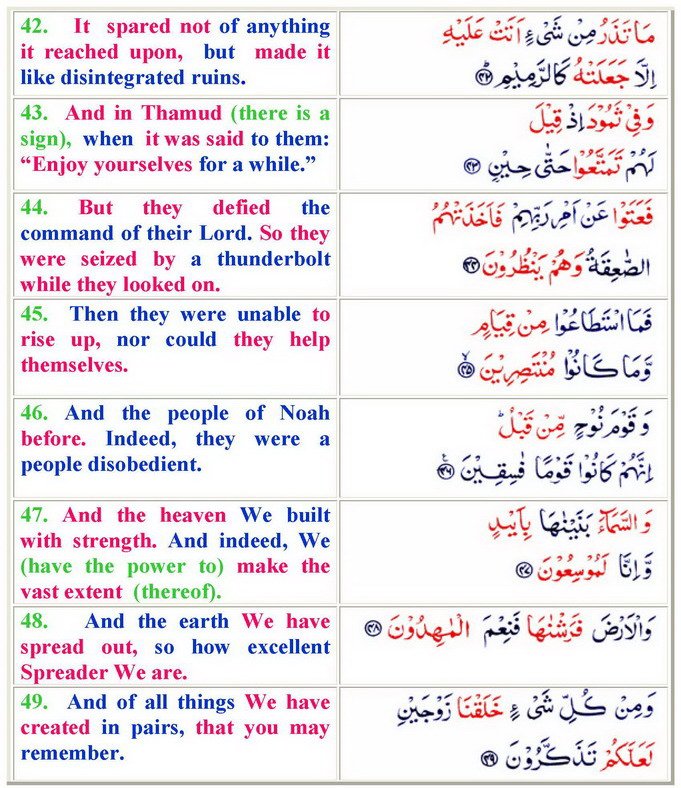 42. It spared not of anything
it reached upon, but made it
like disintegrated ruins.
مَا تَذَرُ مِنْ شَيْءٍ اَتَتْ عَلَيْهِ
اِلَّا جَعَلَتْهُ كَالرَّمِيْمِ ﴿۴۲﴾
43. And in Thamud (there is a
sign), when it was said to them:
“Enjoy yourselves for a while.”
وَفِيْ ثَمُوْدَ اِذْ قِيْلَ
لَهُمْ تَمَتَّعُوْا حَتّٰى حِيْنٍ ﴿۴۳﴾
44. But they defied the
command of their Lord. So they
were seized by a thunderbolt
while they looked on.
فَعَتَوْا عَنْ اَمْرِ رَبِّهِمْ فَاَخَذَتْهُمُ
الصّٰعِقَةُ وَهُمْ يَنْظُرُوْنَ ﴿۴۴﴾
45. Then they were unable to
rise up, nor could they help
themselves.
فَمَا اسْتَطَاعُوْا مِنْ قِيَامٍ
وَّمَا كَانُوْا مُنْتَصِرِيْنَ ﴿۴۵﴾
46. And the people of Noah
before. Indeed, they were a
people disobedient.
وَقَوْمَ نُوْحٍ مِّنْ قَبْلُ ؕ
اِنَّهُمْ كَانُوْا قَوْمًا فٰسِقِيْنَ ﴿۴۶﴾
47. And the heaven We built
with strength. And indeed, We
(have the power to) make the
vast extent (thereof).
وَالسَّمَآءَ بَنَيْنٰهَا بِاَيْىدٍ
وَّاِنَّا لَمُوْسِعُوْنَ ﴿۴۷﴾
48. And the earth We have
spread out, so how excellent
Spreader We are.
وَالْاَرْضَ فَرَشْنٰهَا فَنِعْمَ الْمٰهِدُوْنَ ﴿۴۸﴾
49. And of all things We have
created in pairs, that you may
remember.
وَمِنْ كُلِّ شَيْءٍ خَلَقْنَا زَوْجَيْنِ
لَعَلَّكُمْ تَذَكَّرُوْنَ ﴿۴۹﴾